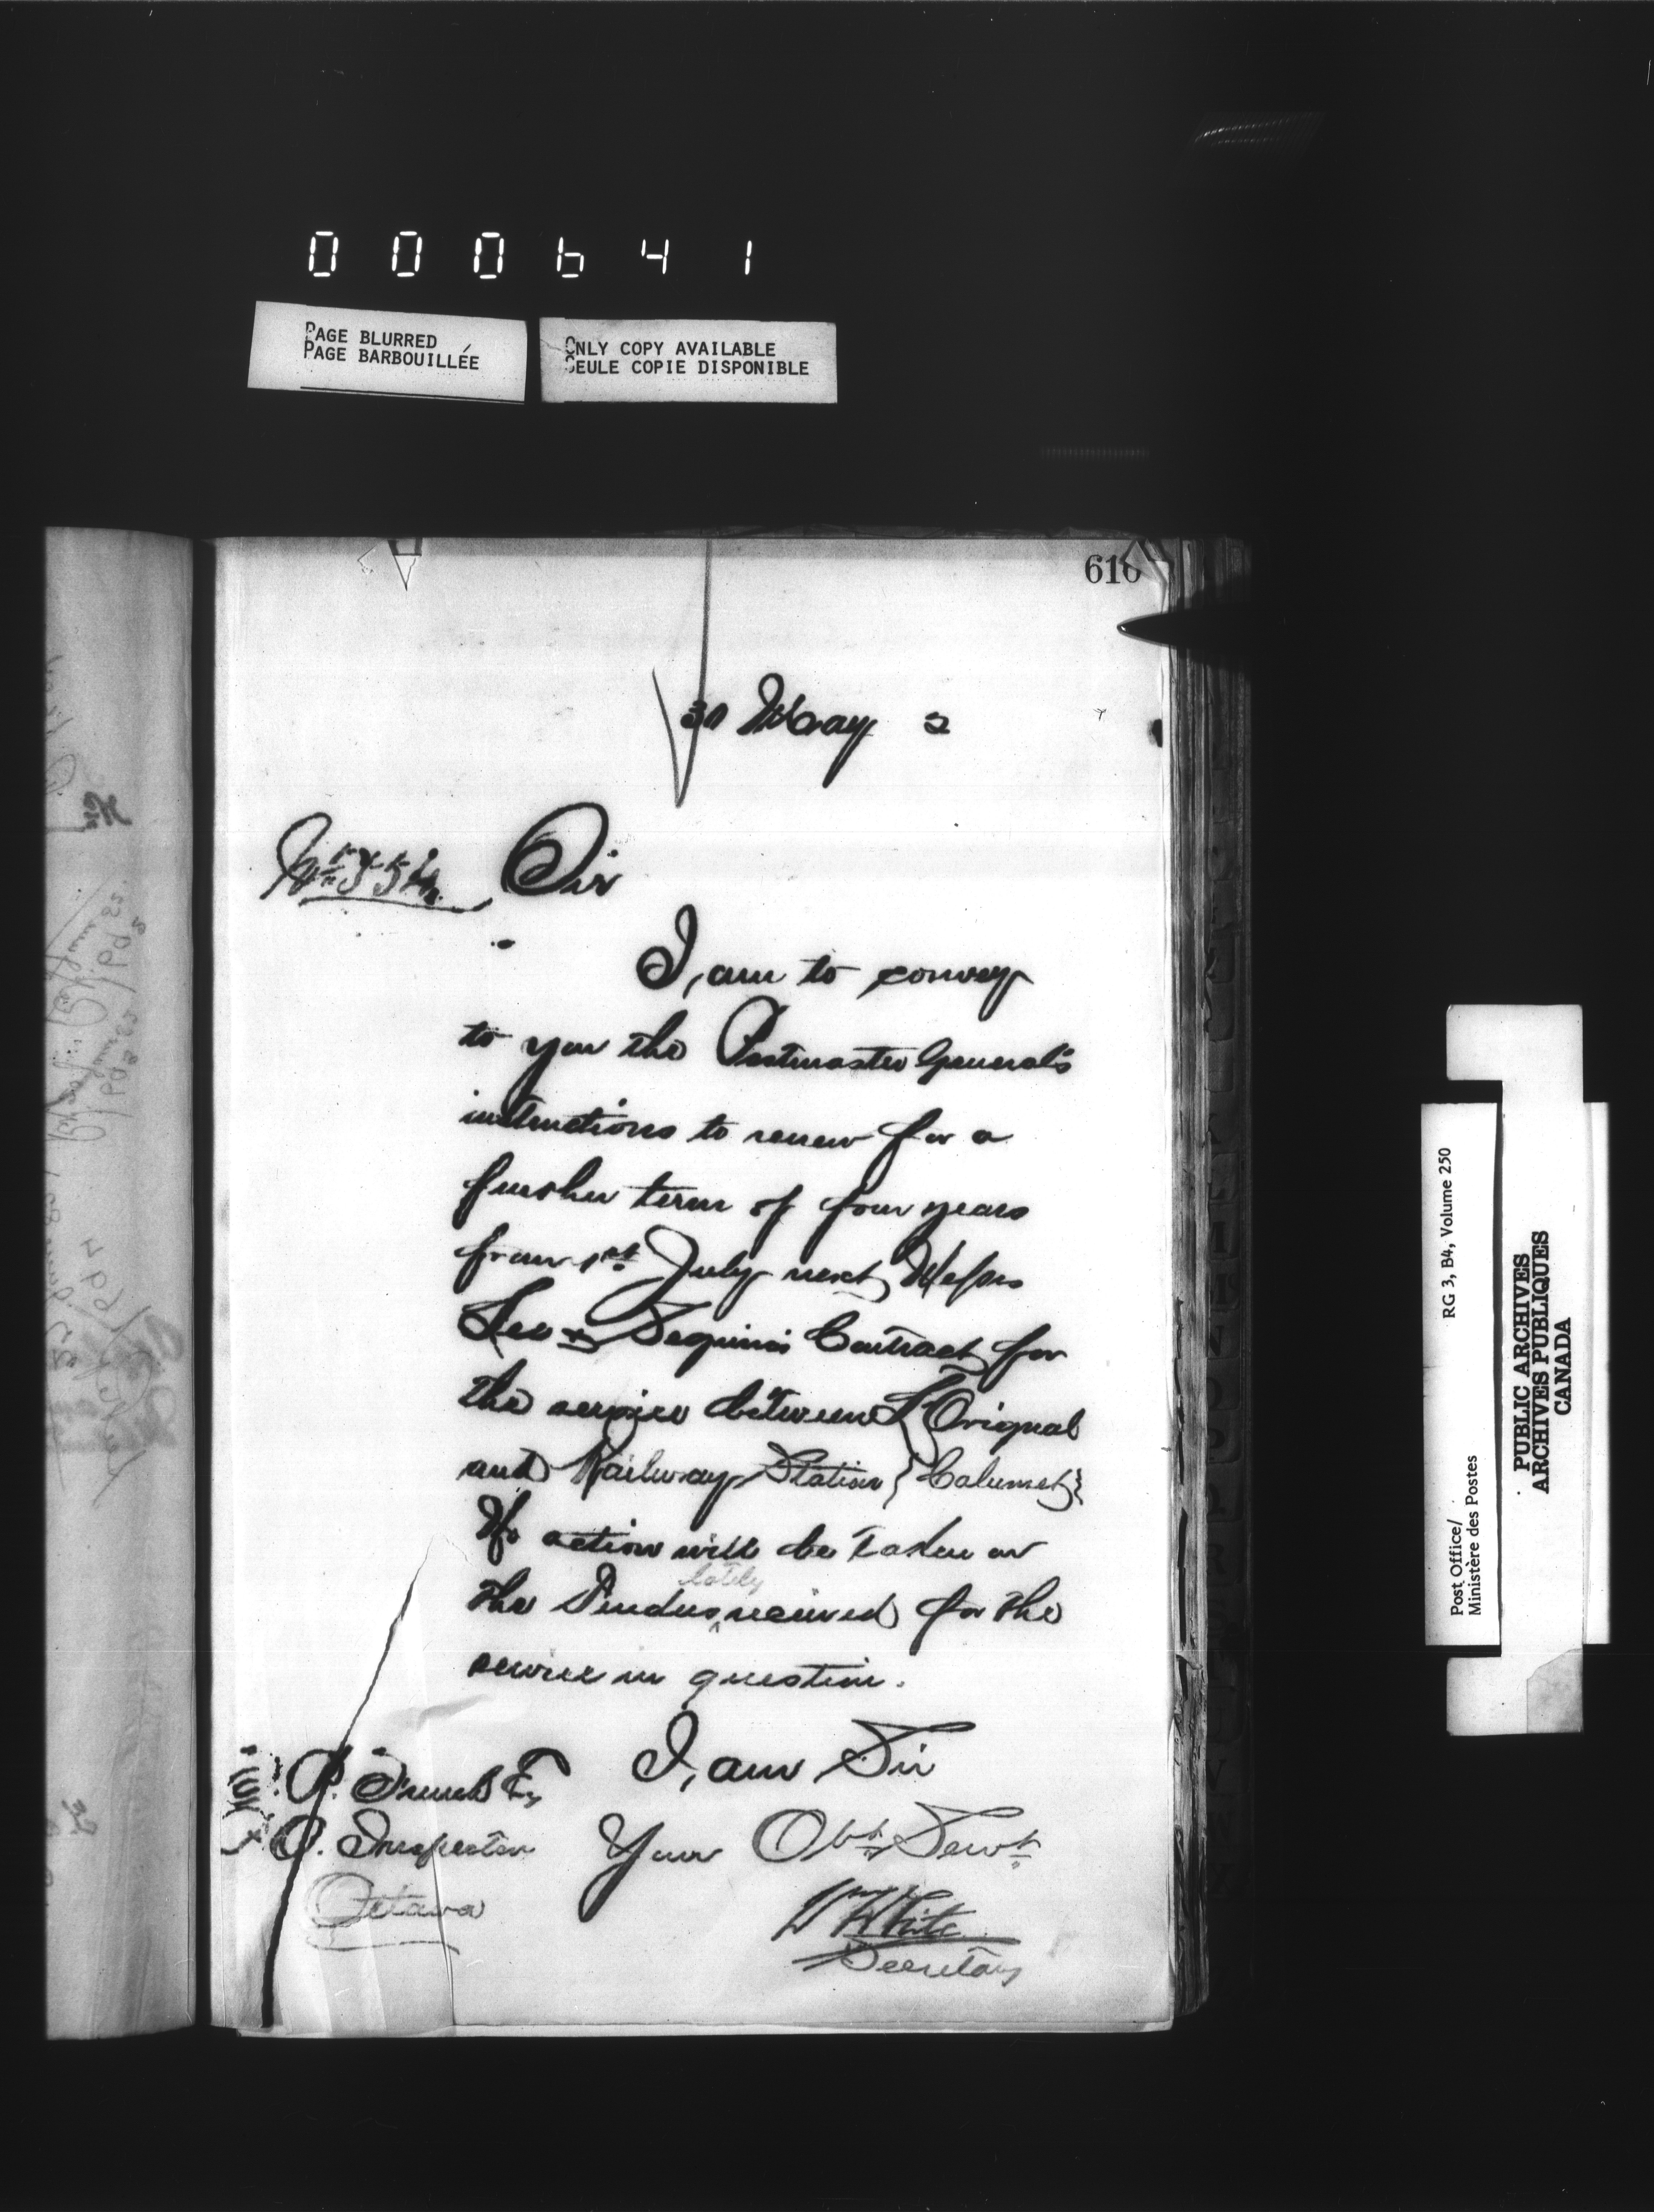 000641
PAGE BLURRED
PAGE BARBOUILLÉE
ONLY COPY AVAILABLE
SEULE COPIE DISPONIBLE
616
30 May 2
Sir
I, am to convey
to you the Postmaster General's
instructions to renew for a
further term of four years
from 1st July next Messrs
Lee & Seguin's Contract for
the service between L'Orignal
and Railway Station {Calumet}
No action will be taken on
the Tenders lately received for the
service in question.
I, am Sir
P. French Esq
P.O. Inspector
Your Obt Servt
Ottawa
Wm White
Secretary
Post Office/
Ministère des Postes
RG 3, B4, Volume 250
PUBLIC ARCHIVES
ARCHIVES PUBLIQUES
CANADA